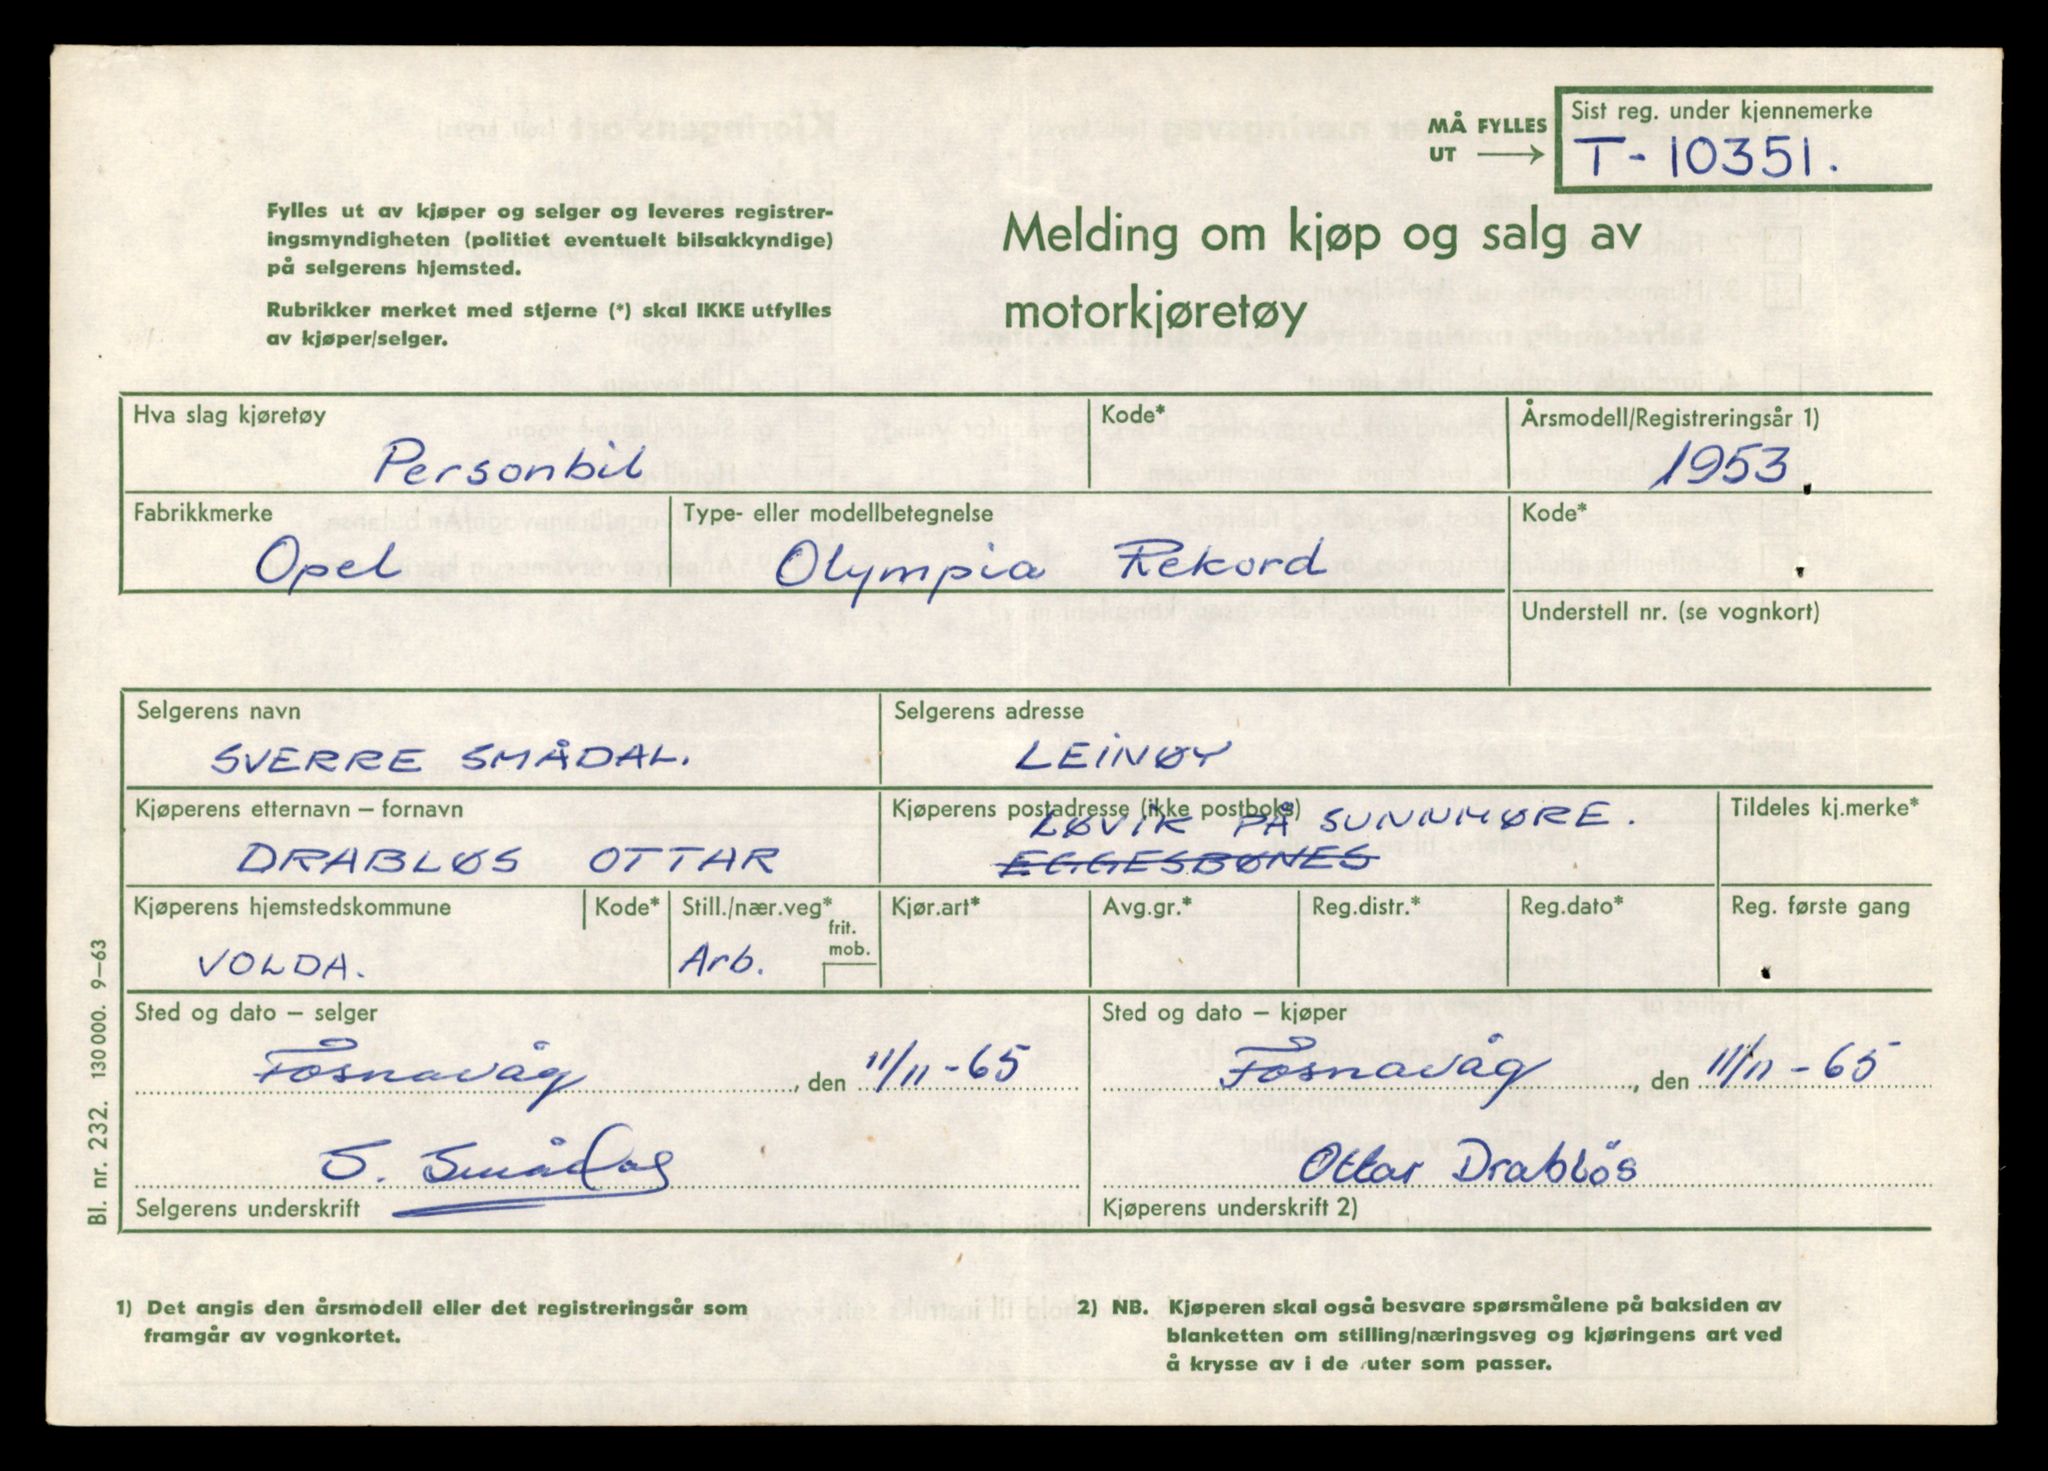 Sist reg. under kjennemerke
MÅ FYLLES
UT
T-10351.
Fylles ut av kjøper og selger og leveres registrer-
ingsmyndigheten (politiet eventuelt bilsakkyndige)
på selgerens hjemsted.
Rubrikker merket med stjerne (*) skal IKKE utfylles
av kjøper/selger.
Melding om kjøp og salg av
motorkjøretøy
Hva slag kjøretøy Kode* Årsmodell/Registreringsår 1)
Personbil 1953.
Fabrikkmerke Type- eller modellbetegnelse Kode*
Opel Olympia Rekord
Understell nr. (se vognkort)
Selgerens navn Selgerens adresse
SVERRE SMÅDAL. LEINØY
Kjøperens etternavn – fornavn Kjøperens postadresse (ikke postboks) Tildeles kj.merke*
LØVIK PÅ SUNNMØRE.
DRABLØS OTTAR EGGESBØNES
Kjøperens hjemstedskommune Kode* Still./nær.veg* Kjør.art* Avg.gr.* Reg.distr.* Reg.dato* Reg. første gang
frit.
mob.
VOLDA. Arb.
Sted og dato – selger Sted og dato – kjøper
Fosnavåg, den 11/11-65 Fosnavåg, den 11/11-65
S. Smådal Ottar Drabløs
Selgerens underskrift Kjøperens underskrift 2)
Bl. nr. 232. 130 000. 9–63
1) Det angis den årsmodell eller det registreringsår som
framgår av vognkortet.
2) NB. Kjøperen skal også besvare spørsmålene på baksiden av
blanketten om stilling/næringsveg og kjøringens art ved
å krysse av i de ruter som passer.